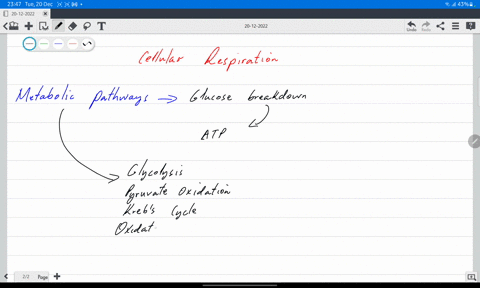 23:47 Tue, 20 Dec
43%
20-12-2022
20-12-2022
Undo
Redo
Cellular Respiration
Metabolic pathways → Glucose breakdown
ATP
Glycolysis
Pyruvate Oxidation
Kreb's Cycle
Oxidat
2/2 Page